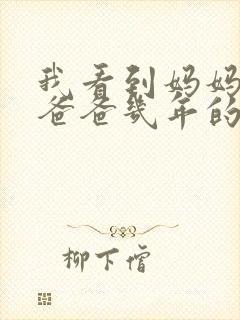 我看到妈妈
爸爸几年的
柳下僧